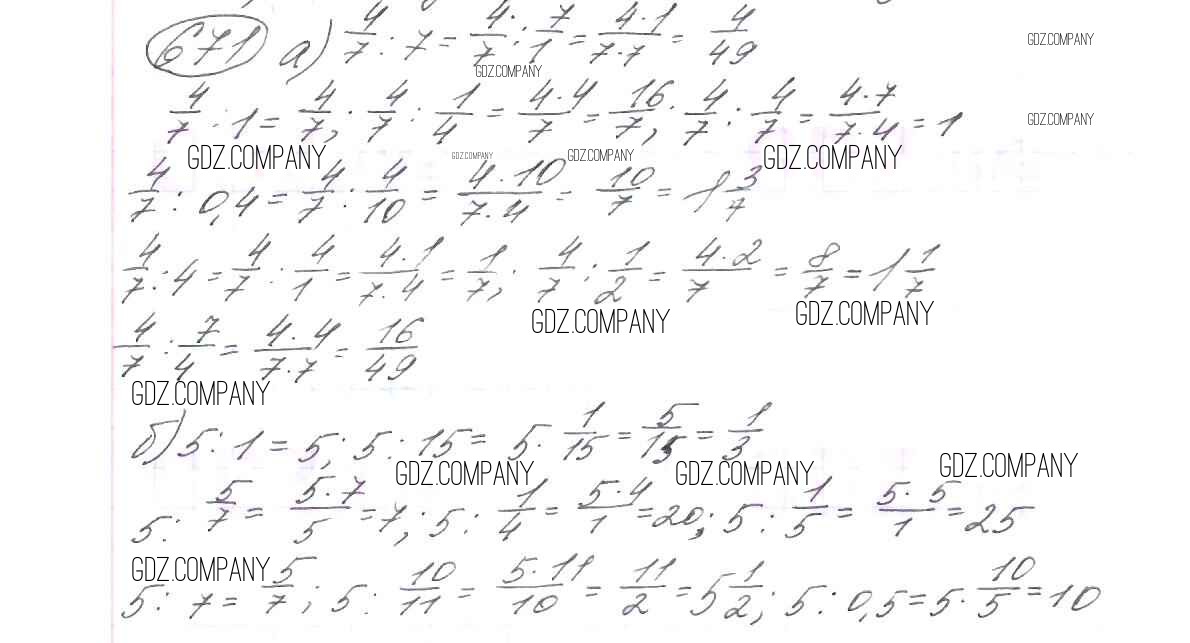 671 а) 4/7 : 7 = 4/7 : 7/1 = 4·1/7·7 = 4/49 GDZ.COMPANY
GDZ.COMPANY
4/7 : 1 = 4/7; 4/7 : 1/4 = 4·4/7 = 16/7; 4/7 : 4/7 = 4·7/7·4 = 1 GDZ.COMPANY
GDZ.COMPANY GDZ.COMPANY GDZ.COMPANY GDZ.COMPANY
4/7 : 0,4 = 4/7 : 4/10 = 4·10/7·4 = 10/7 = 1 3/7
4/7 : 4 = 4/7 : 4/1 = 4·1/7·4 = 1/7; 4/7 : 1/2 = 4·2/7 = 8/7 = 1 1/7
GDZ.COMPANY GDZ.COMPANY
4/7 : 7/4 = 4·4/7·7 = 16/49
GDZ.COMPANY
б) 5 : 1 = 5; 5 : 15 = 5 · 1/15 = 5/15 = 1/3
GDZ.COMPANY GDZ.COMPANY GDZ.COMPANY
5 : 5/7 = 5·7/5 = 7; 5 : 1/4 = 5·4/1 = 20; 5 : 1/5 = 5·5/1 = 25
GDZ.COMPANY
5 : 7 = 5/7; 5 : 10/11 = 5·11/10 = 11/2 = 5 1/2; 5 : 0,5 = 5 · 10/5 = 10